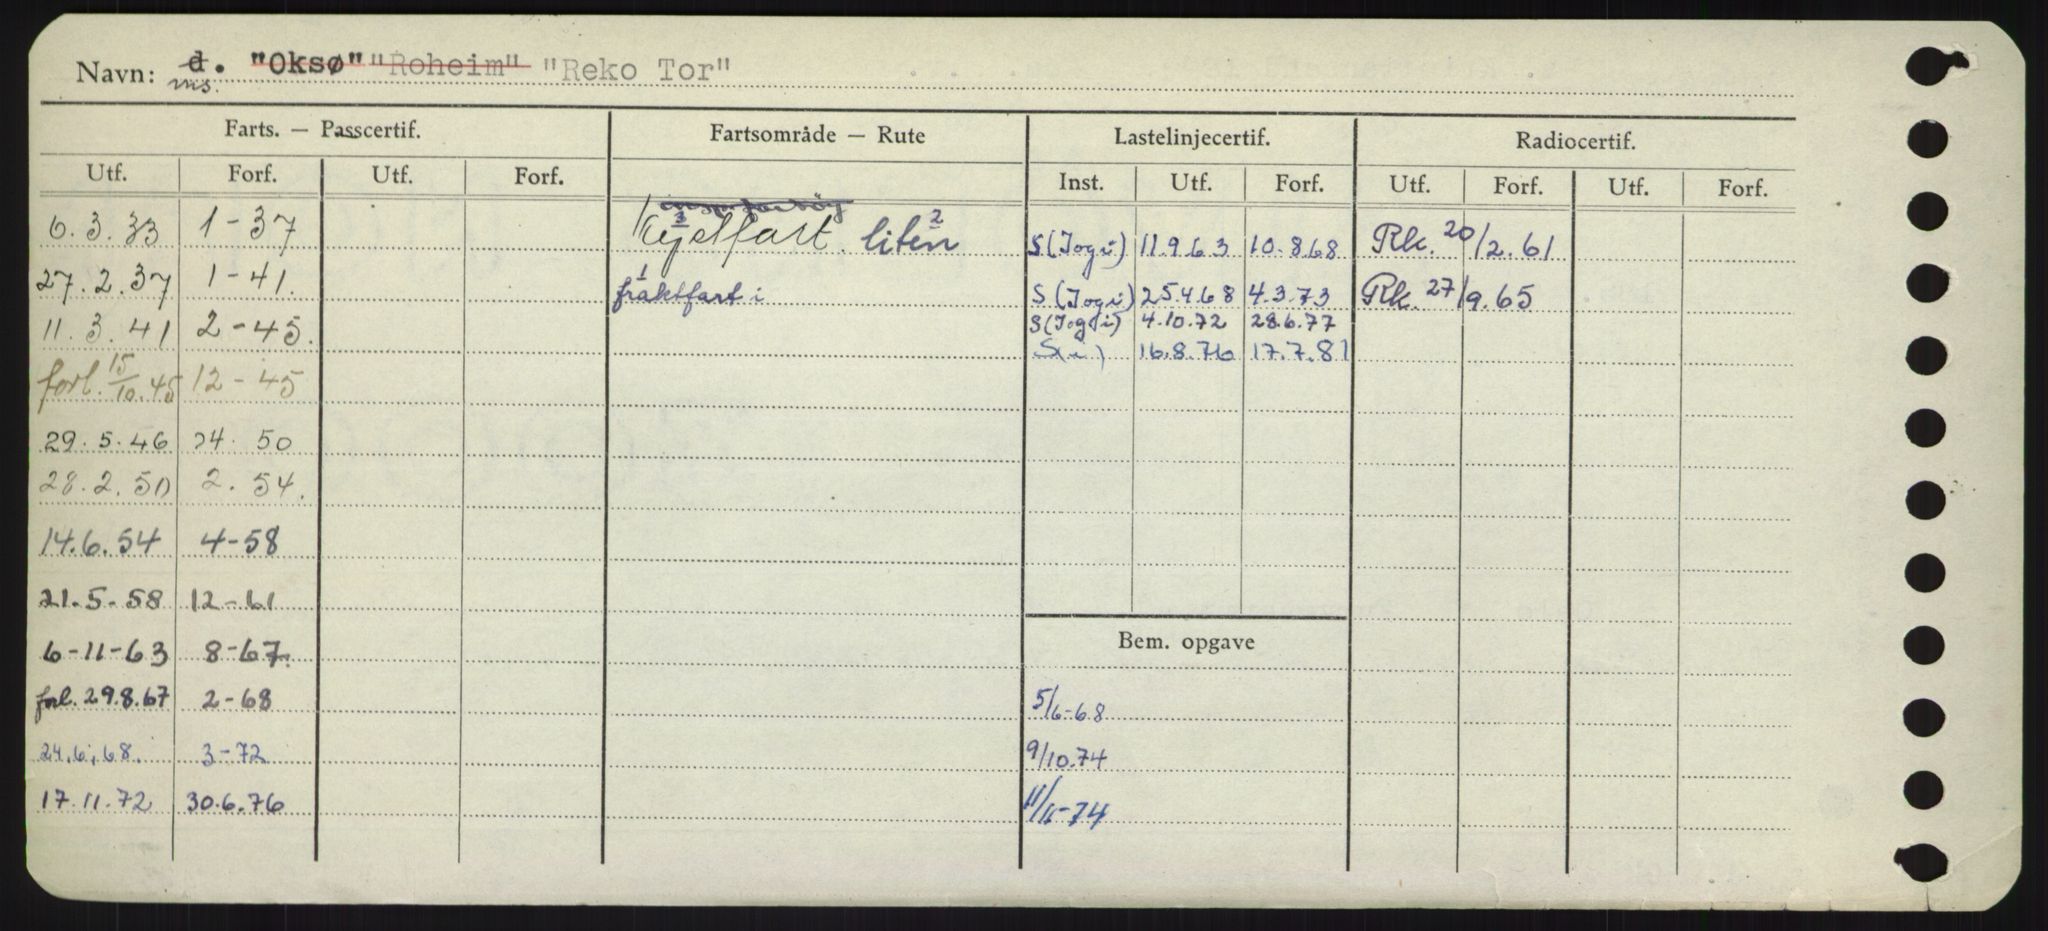 Navn: d. "Oksø" "Roheim" "Reko Tor"
ms.
Farts. — Passcertif. Fartsområde — Rute Lastelinjecertif. Radiocertif.
Utf. Forf. Utf. Forf. Inst. Utf. Forf. Utf. Forf. Utf. Forf.
6.3.33 1-37 Kystfart 3 liten 2 S(Iogi) 11.9.63 10.8.68 Rk. 20/2.61
27.2.37 1-41. 1 fraktfart i S(Iogi) 25.4.68 4.3.73 Rk. 27/9.65
11.3.41 2-45. S(Iogi) 4.10.72 28.6.77
S(i) 16.8.76 17.7.81
forl. 15/10.45 12-45
29.5.46 24.50
28.2.50 2.54.
14.6.54 4-58
21.5.58 12-61
6-11-63 8-67. Bem. opgave
forl. 29.8.67 2-68 5/6-68
24.6.68. 3-72 9/10.74
17.11.72 30.6.76 11/11-74